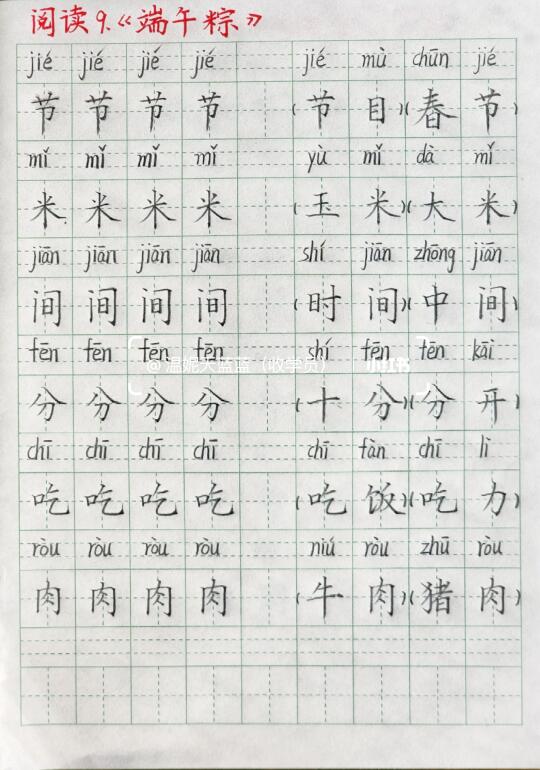 阅读9.《端午粽》
jié jié jié jié jié mù chūn jié
节 节 节 节 (节 目)(春 节)
mǐ mǐ mǐ mǐ yù mǐ dà mǐ
米 米 米 米 (玉 米)(大 米)
jiān jiān jiān jiān shí jiān zhōng jiān
间 间 间 间 (时 间)(中 间)
fēn fēn fēn fēn shí fēn fēn kāi
@温妮天蓝蓝(收学员) 小红书
分 分 分 分 (十 分)(分 开)
chī chī chī chī chī fàn chī lì
吃 吃 吃 吃 (吃 饭)(吃 力)
ròu ròu ròu ròu niú ròu zhū ròu
肉 肉 肉 肉 (牛 肉)(猪 肉)